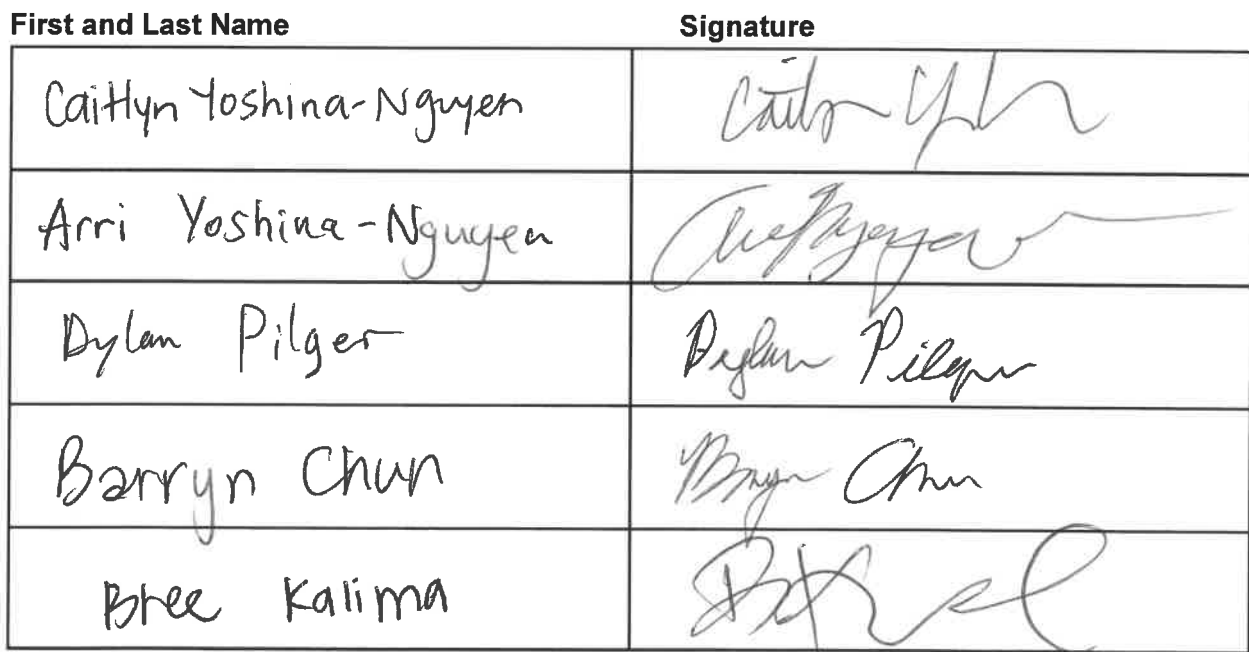 First and Last Name Signature
Caitlyn Yoshina-Nguyen
Arri Yoshina-Nguyen
Dylan Pilger Dylan Pilger
Barryn Chun Chun
Bree Kalima